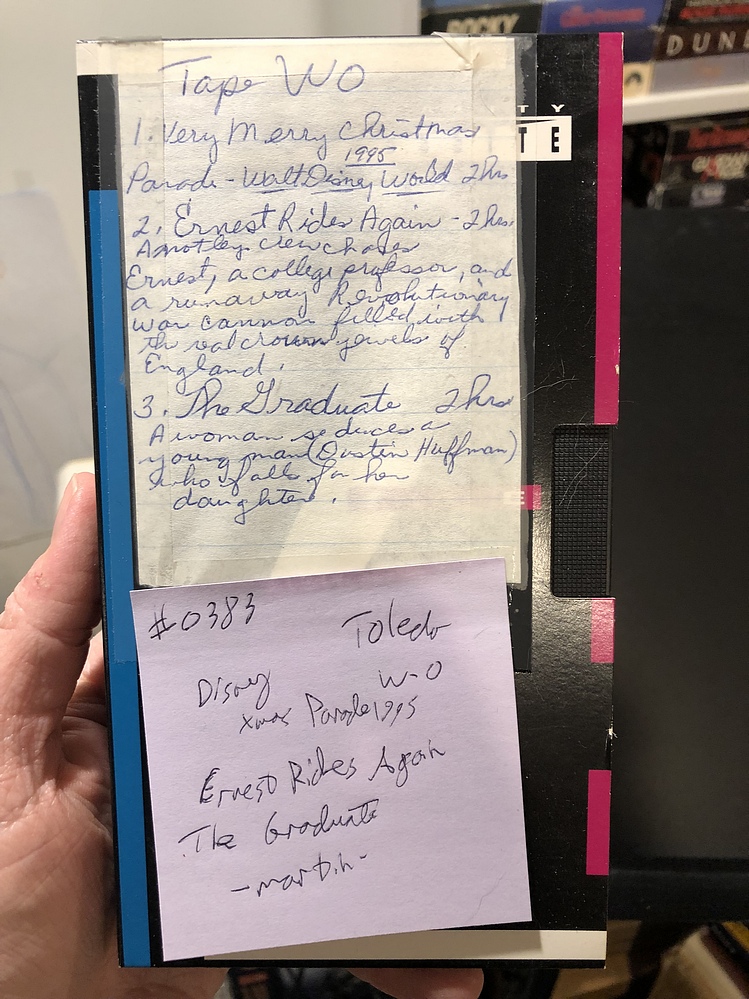 ROCKY
DUN
T Y
T E
Tape WO
1. Very Merry Christmas
1995
Parade - Walt Disney World 2 hrs
2. Ernest Rides Again - 2 hrs.
A motley crew chases
Ernest, a college professor, and
a runaway Revolutionary
war cannon filled with
the real crown jewels of
England.
3. The Graduate 2 hrs
A woman seduces a
young man (Dustin Huffman)
who falls for her
daughter.
E
#0383 Toledo
Disney W-O
xmas Parade 1995
Ernest Rides Again
The Graduate
- martin -